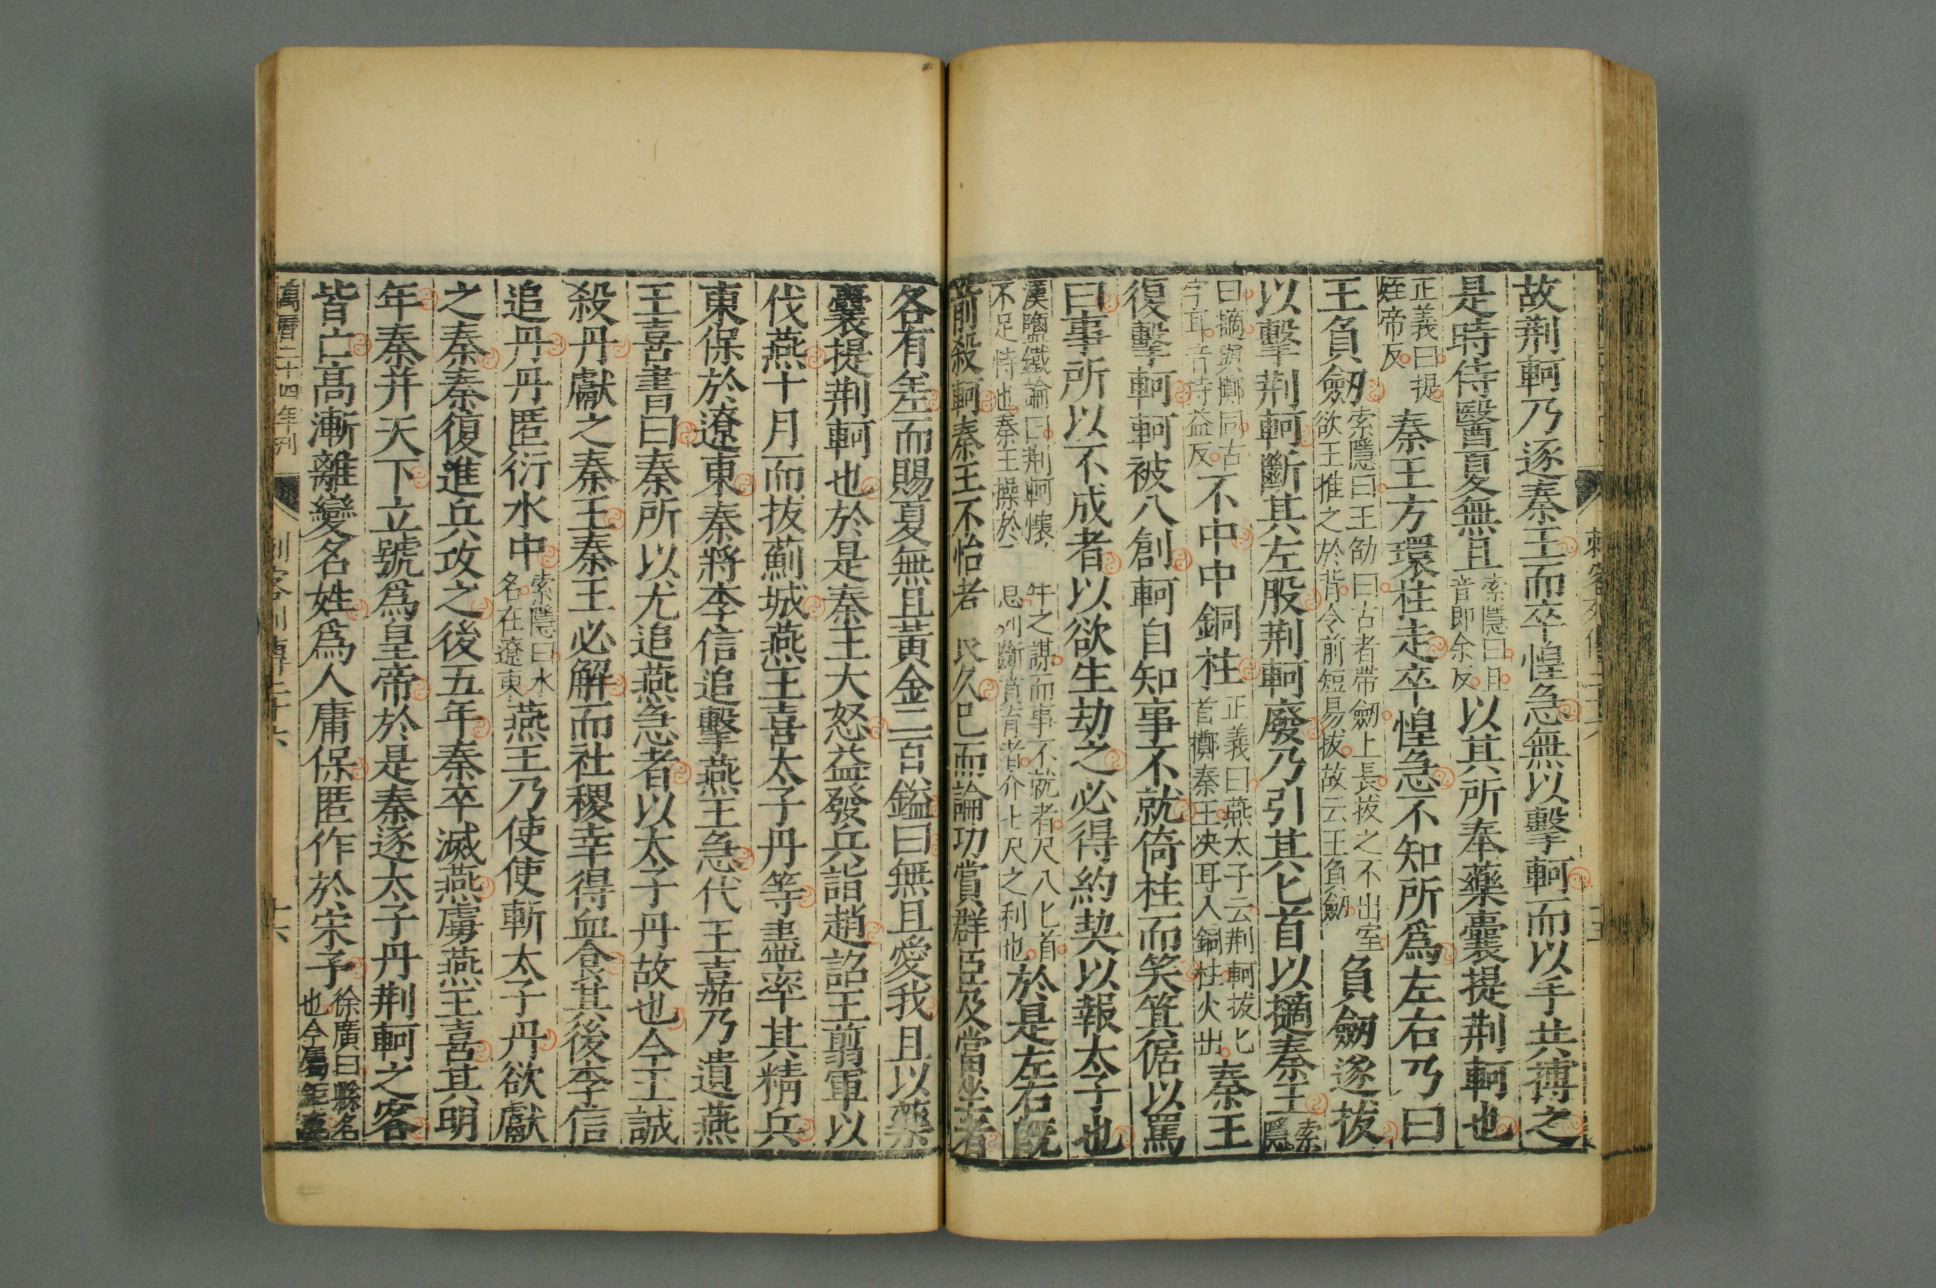 刺客列傳二十六 十五
故荆軻乃逐秦王而卒惶急無以擊軻而以手共搏之
是時侍醫夏無且索隱曰且音即余反以其所奉藥囊提荆軻也
正義曰提姪帝反秦王方環柱走卒惶急不知所爲左右乃曰
王負劒索隱曰王劭曰古者帶劒上長拔之不出室欲王推之於背令前短易拔故云王負劒負劒遂拔
以擊荆軻斷其左股荆軻廢乃引其匕首以擿秦王索隱
曰擿與擲同古字耳音持益反不中中銅柱正義曰燕太子云荆軻拔匕首擲秦王决耳入銅柱火出秦王
復擊軻軻被八創軻自知事不就倚柱而笑箕倨以罵
曰事所以不成者以欲生劫之必得約契以報太子也
漢鹽鐵論曰荆軻懷年之謀而事不就者尺八匕首不足恃也秦王操於列斷賁育者介七尺之利也於是左右既
前殺軻秦王不怡者良久已而論功賞群臣及當坐者
各有差而賜夏無且黃金二百鎰曰無且愛我且以藥
囊提荆軻也於是秦王大怒益發兵詣趙詔王翦軍以
伐燕十月而拔薊城燕王喜太子丹等盡率其精兵
東保於遼東秦將李信追擊燕王急代王嘉乃遺燕
王喜書曰秦所以尤追燕急者以太子丹故也今王誠
殺丹獻之秦王秦王必解而社稷幸得血食其後李信
追丹丹匿衍水中索隱曰水名在遼東燕王乃使使斬太子丹欲獻
之秦秦復進兵攻之後五年秦卒滅燕虜燕王喜其明
年秦并天下立號爲皇帝於是秦逐太子丹荆軻之客
皆亡高漸離變名姓爲人庸保匿作於宋子徐廣曰縣名也今屬鉅鹿
萬曆二十四年刊 列客列傳二十六 十六